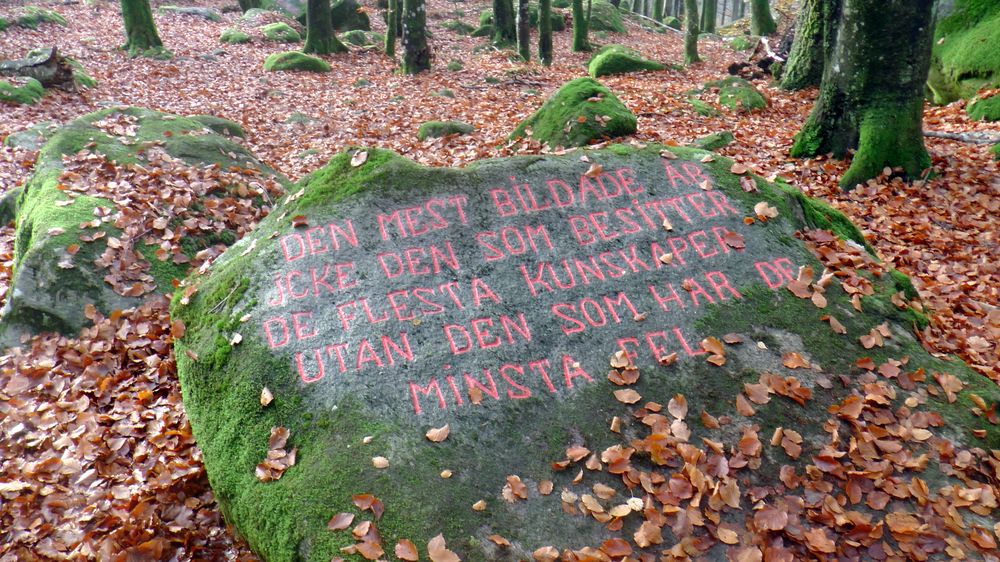 DEN MEST BILDADE ÄR
ICKE DEN SOM BESITTER
DE FLESTA KUNSKAPER
UTAN DEN SOM HAR DE
MINSTA FEL